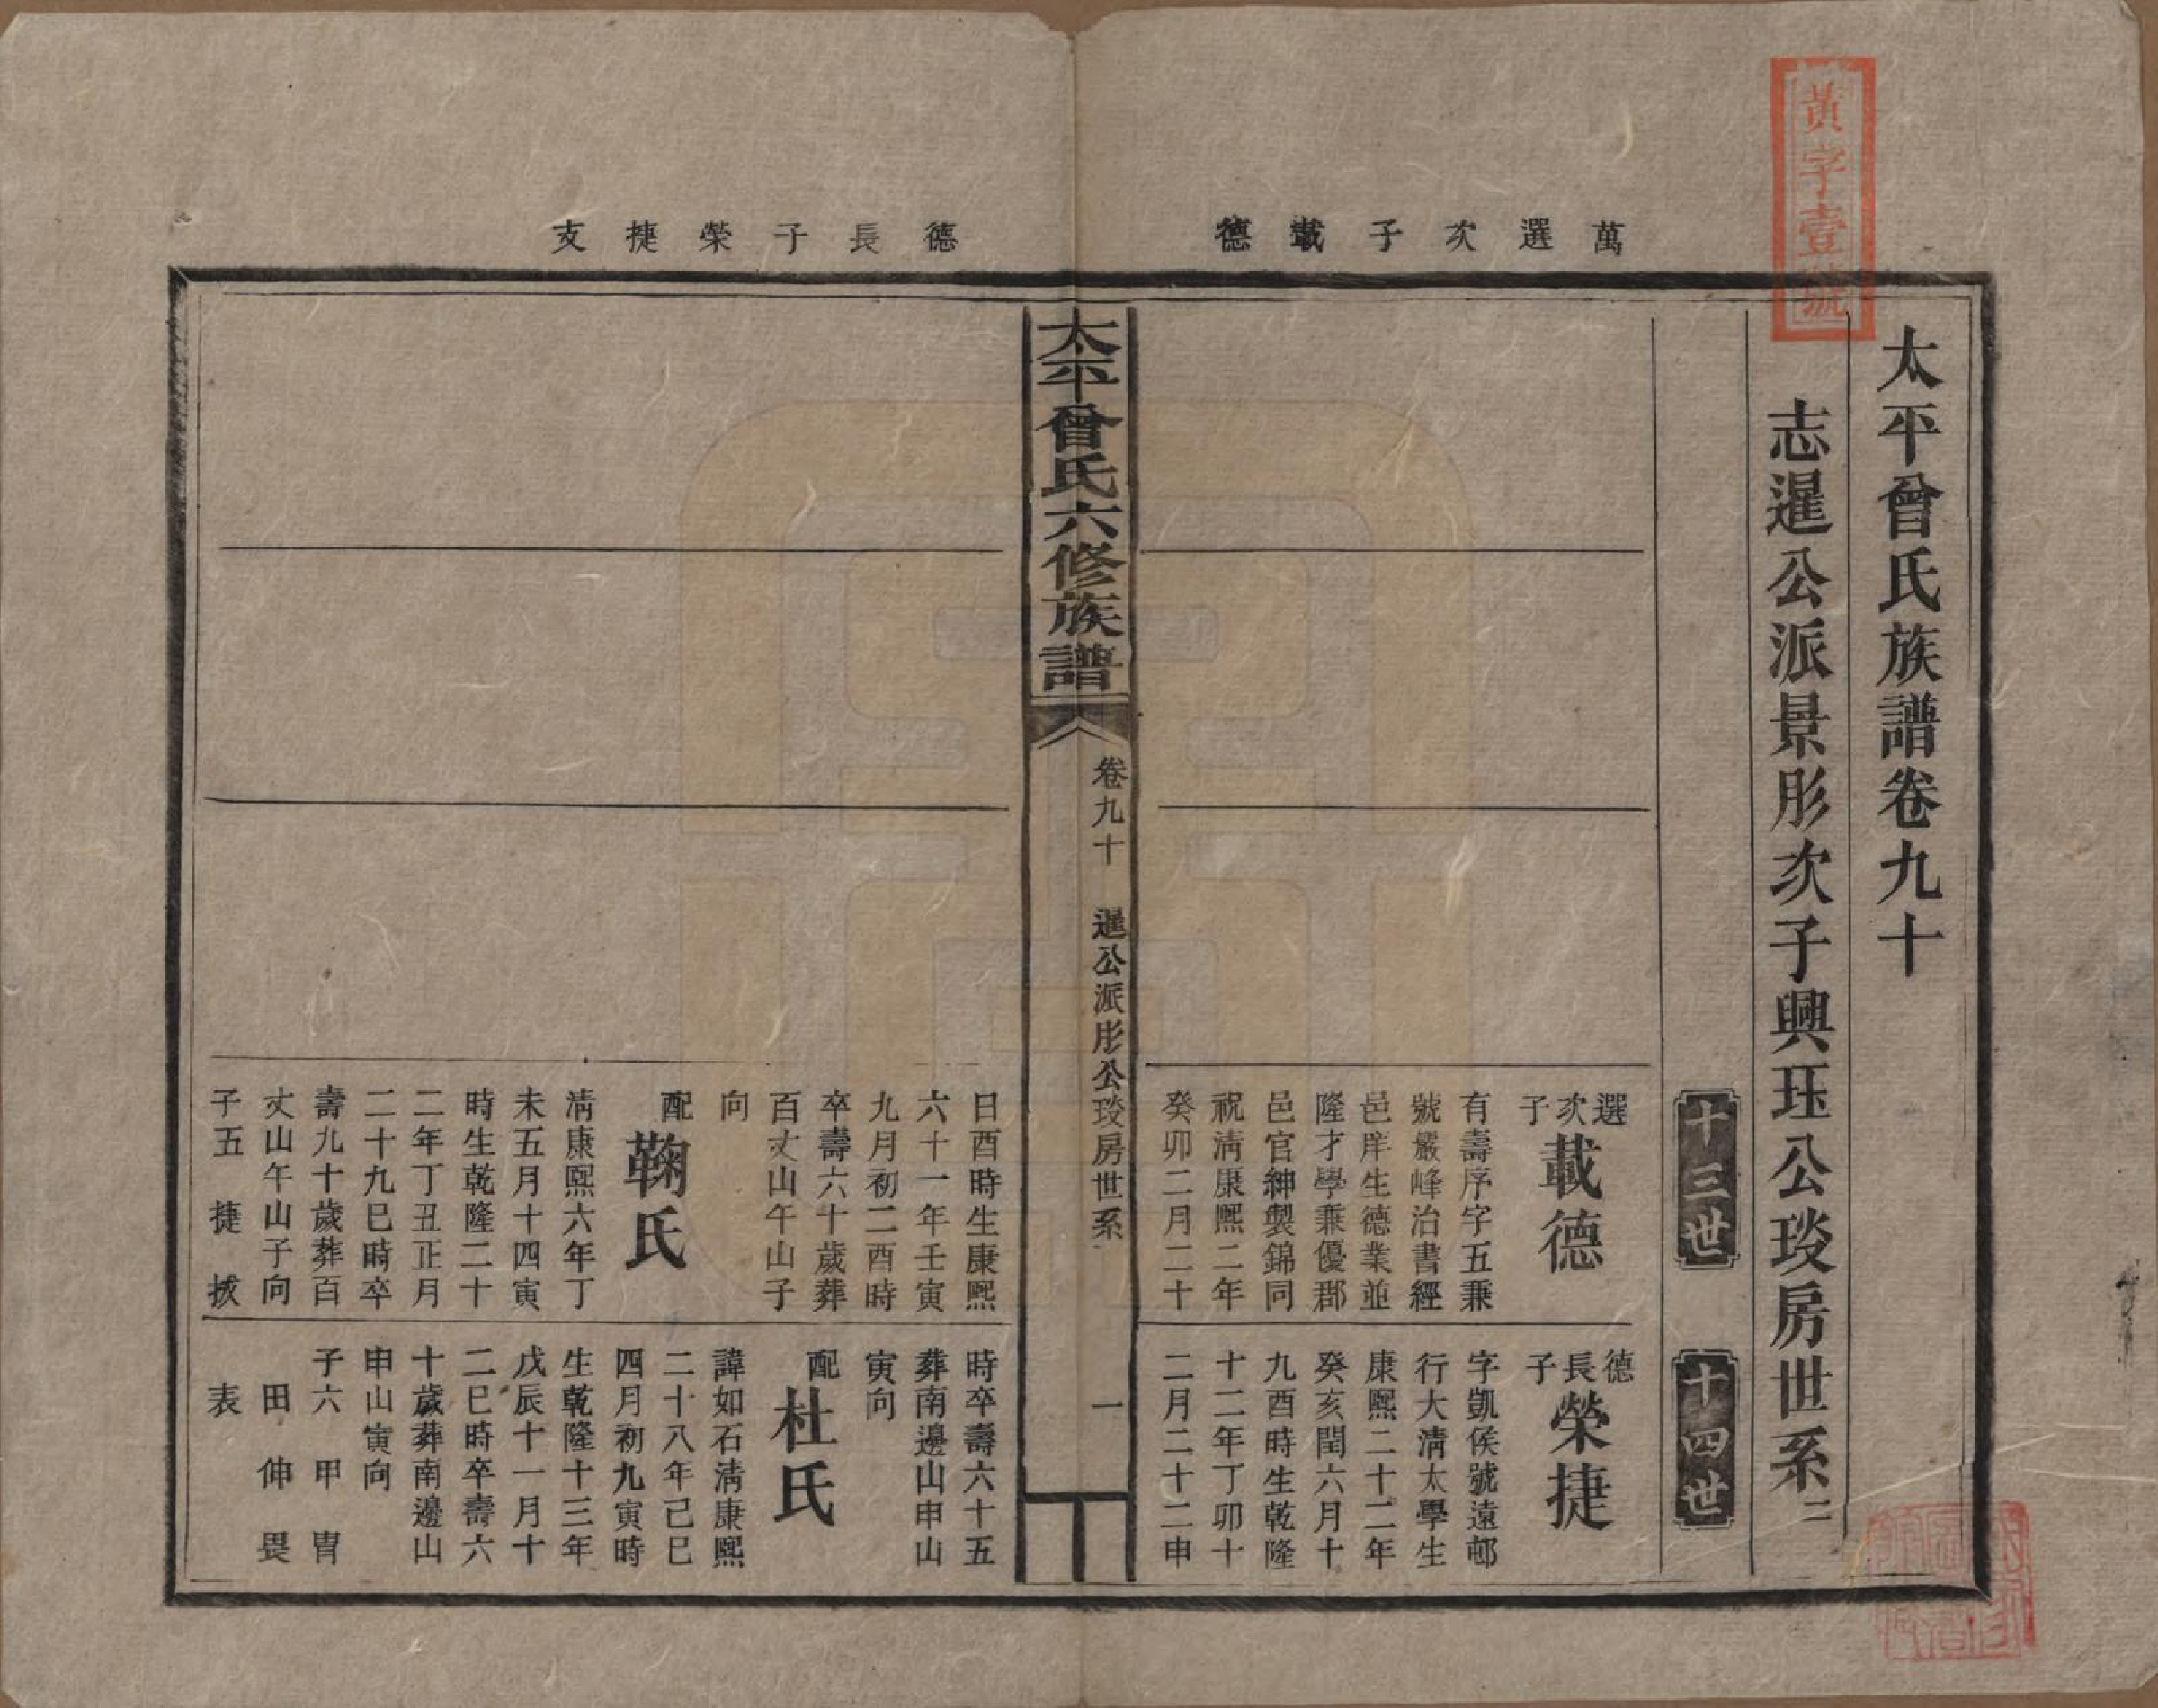 黃字壹號
太平曾氏族譜卷九十
志暹公派景彤次子興珏公琰房世系二
十三世
十四世
萬選次子載德
選次子載德
有壽序字五兼
號嚴峰治書經
邑庠生德業並
隆才學兼優郡
邑官紳製錦同
祝清康熙二年
癸卯二月二十
德長子榮捷
字凱侯號遠邨
行大清太學生
康熙二十二年
癸亥閏六月十
九酉時生乾隆
十二年丁卯十
二月二十二申
太平曾氏六修族譜
卷九十
暹公派彤公琰房世系
一
德長子榮捷支
日酉時生康熙
六十一年壬寅
九月初二酉時
卒壽六十歲葬
百丈山午山子
向
配鞠氏
清康熙六年丁
未五月十四寅
時生乾隆二十
二年丁丑正月
二十九巳時卒
壽九十歲葬百
丈山午山子向
子五 捷 拔
時卒壽六十五
葬南邊山申山
寅向
配杜氏
諱如石清康熙
二十八年己巳
四月初九寅時
生乾隆十三年
戊辰十一月十
二巳時卒壽六
十歲葬南邊山
申山寅向
子六 甲 冑
田 伸 畏
表